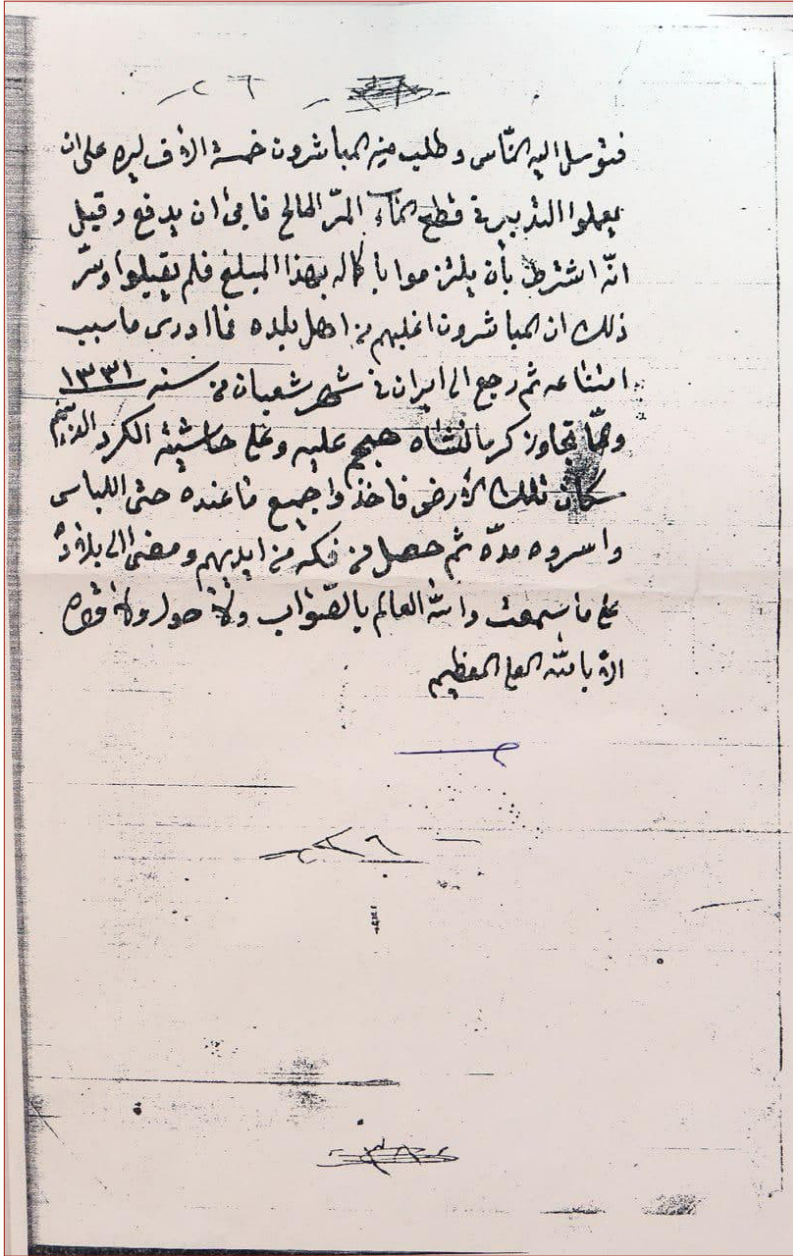 - ٢٦ -
فتوسل اليه النّاس و طلب منه المباشرون خمسة الاف ليره على ان
يعملوا التدبير فى قطع الماء المرّ المالح فابى ان يدفع و قيل
انّه اشترط بأن يلتزموا باكماله بهذا المبلغ فلم يقبلوا وسّر
ذلك ان المباشرون اغلبهم من اهل بلده فما ادرى ما سبب
امتناعه ثم رجع الى ايران فى شهر شعبان من سنه ١٣٣١
و لمّا تجاوز كرمانشاه هجم عليه و على حاشيته الكرد الذين هم
سكان تلك الأرض فاخذوا جميع ما عنده حتى اللباس
واسروه مدّه ثم حصل من فكّه من ايديهم و مضى الى بلاده
على ما سمعت و الله العالم بالصّواب و لا حول و لا قوه
الا بالله العلى العظيم